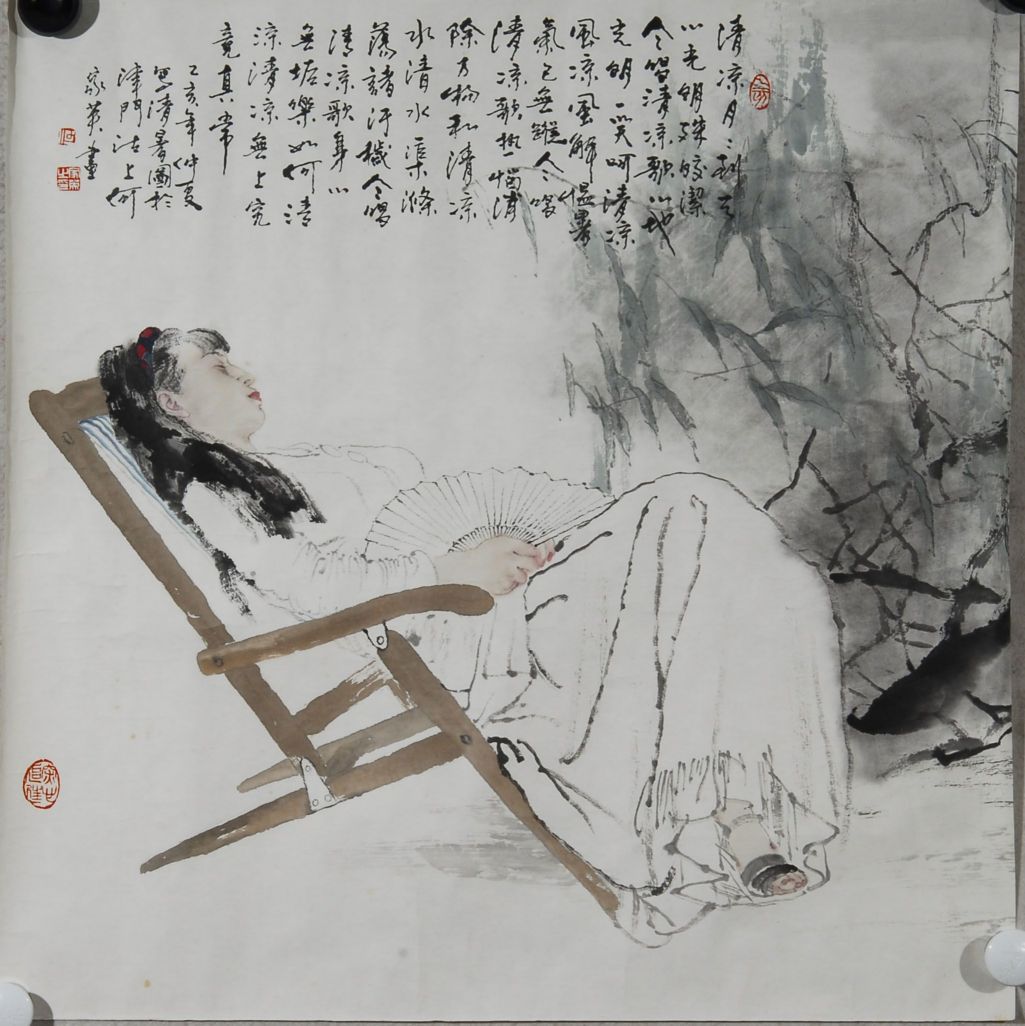 清凉月〻到天
心光明殊皎潔
今唱清凉歌心地
光明一笑呵清凉
風凉風解愠暑
氣已無蹤今唱
清凉歌热惱消
除万物和清凉
水清水一渠滌
蕩諸汙穢今唱
清凉歌身心
無垢樂如何清
凉清凉無上究
竟真常
乙亥年仲夏
寫清暑圖於
津門沽上何
家英畫